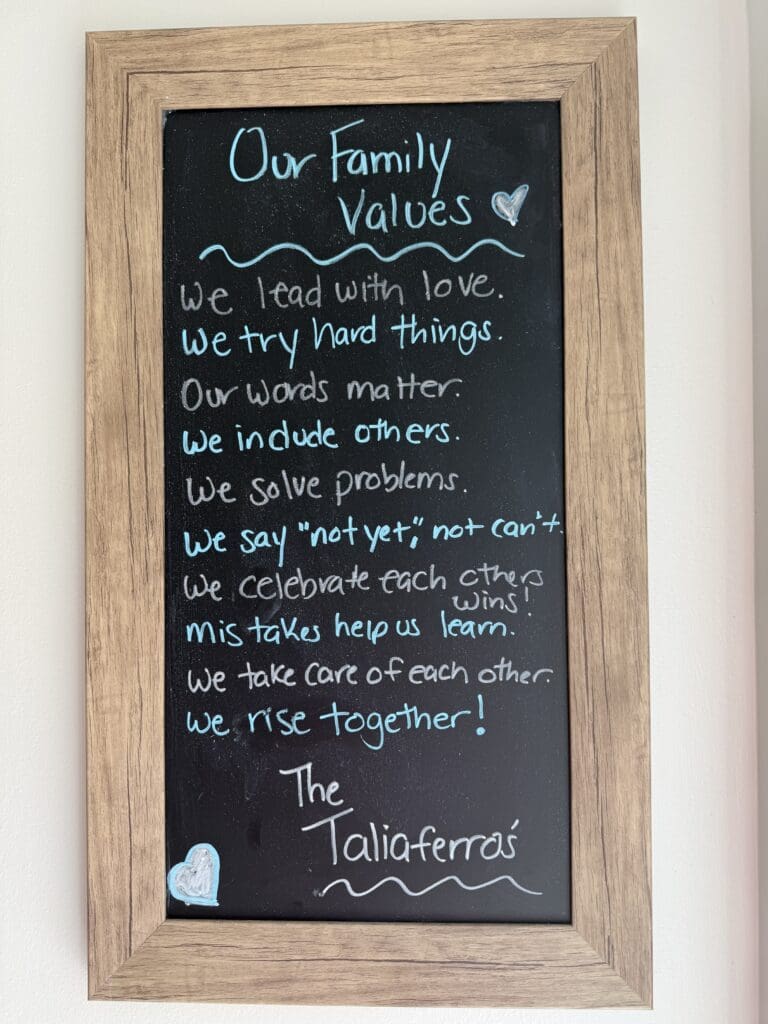 Our Family
Values
We lead with love.
We try hard things.
Our words matter.
We include others.
We solve problems.
We say "not yet," not can't.
We celebrate each others
wins!
mistakes help us learn.
We take care of each other.
We rise together!
The
Taliaferros'